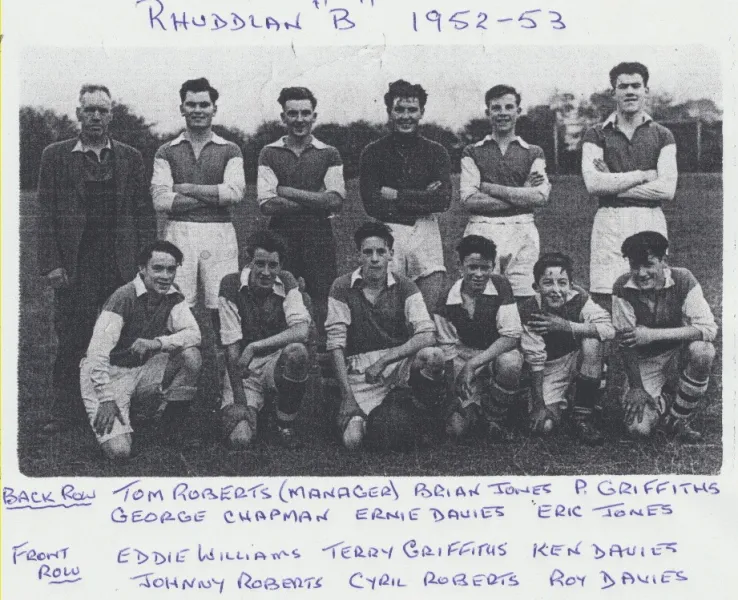 RHUDDLAN "B" 1952-53
BACK ROW TOM ROBERTS (MANAGER) BRIAN JONES P. GRIFFITHS
GEORGE CHAPMAN ERNIE DAVIES ERIC JONES
FRONT ROW EDDIE WILLIAMS TERRY GRIFFITHS KEN DAVIES
JOHNNY ROBERTS CYRIL ROBERTS ROY DAVIES